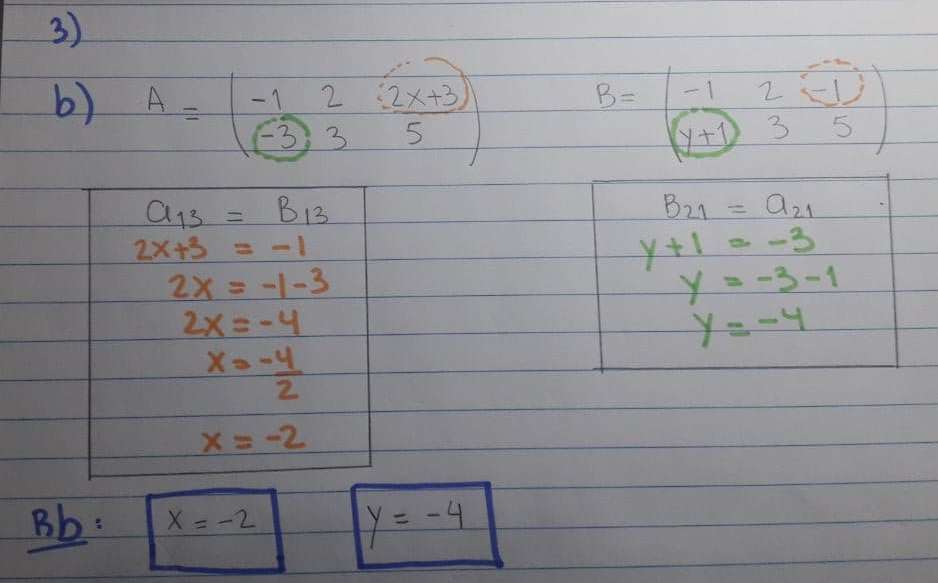 3)
b) A = ( -1 2 2x+3 ) B = ( -1 2 -1 )
( -3 3 5 ) ( y+1 3 5 )
a13 = B13
2x+3 = -1
2x = -1-3
2x = -4
x = -4/2
x = -2
B21 = a21
y+1 = -3
y = -3-1
y = -4
Rb: x = -2 y = -4